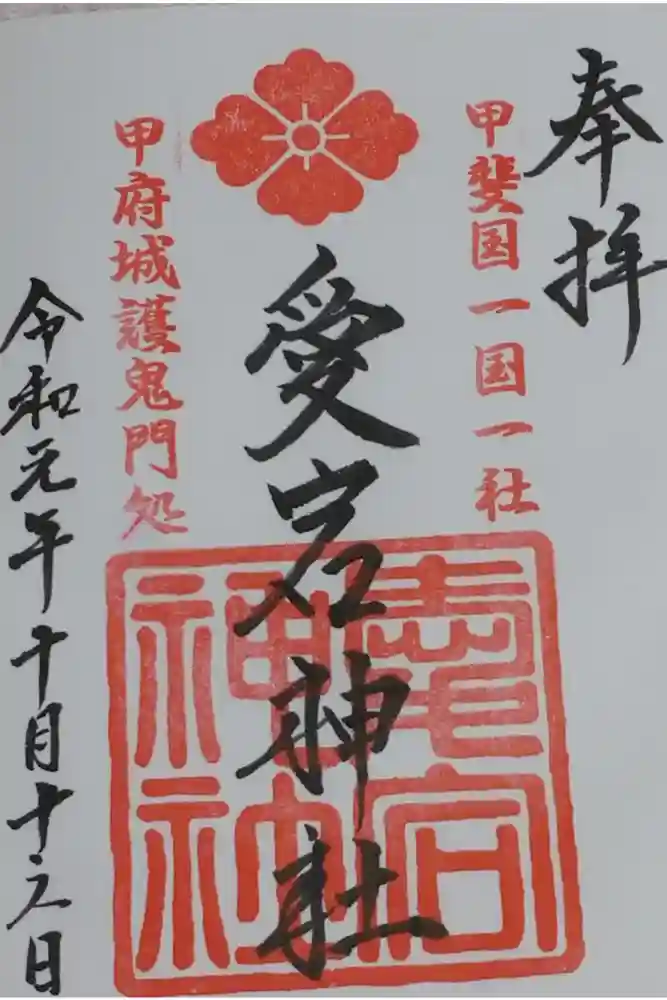 奉拝
甲斐国一国一社
愛宕神社
甲府城護鬼門処
令和元年十月十六日
愛宕
神社